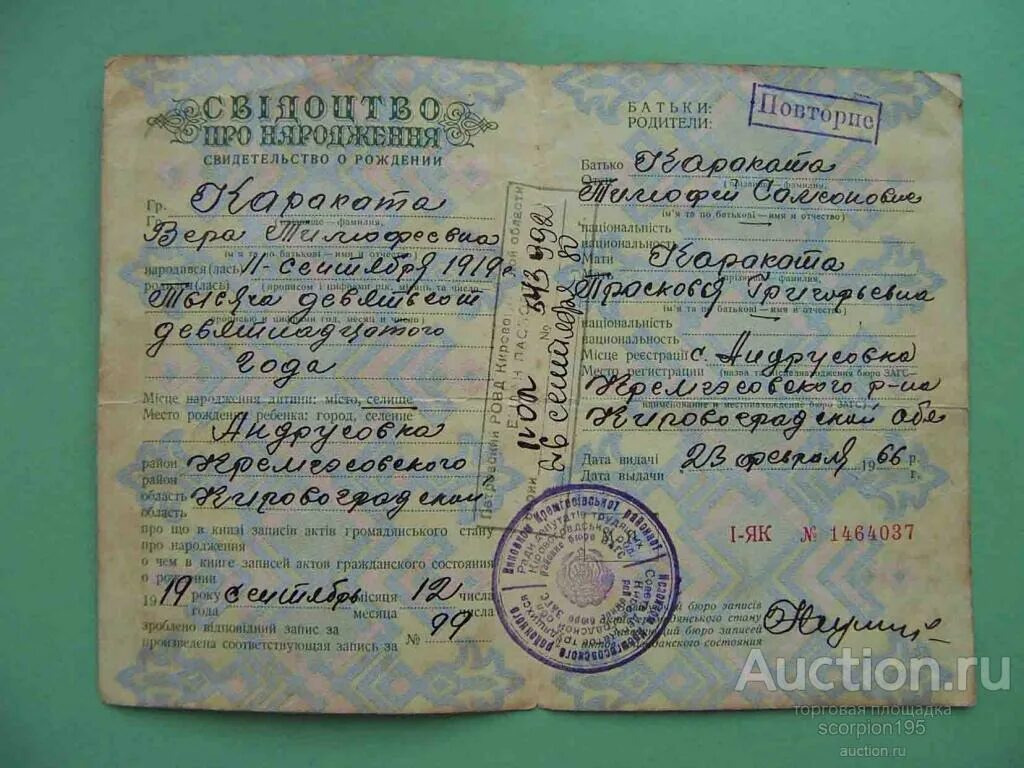 СВІДОЦТВО
ПРО НАРОДЖЕННЯ
СВИДЕТЕЛЬСТВО О РОЖДЕНИИ
Гр. Караката
Гр. прізвище — фамилия,
Вера Тимофеевна
(ім'я та по батькові — имя и отчество)
народався (лась) 11 - сентября 1919
родился (лась) (прописом і цифрами рік, місяць та число
Тысяча девятьсот
прописью и цифрами год, месяц и число)
девятнадцатого
года
Місце народження дитини: місто, селище
Место рождения ребенка: город, селение
Андрусовка
район Кремгэсовского
район
область Кировоградской
область
про що в книзі записів актів громадянського стану
про народження
о чем в книге записей актов гражданского состояния
о рождении
19 19 року сентябрь місяця 12 числа
года месяца числа
зроблено відповідний запис за № 99
произведена соответствующая запись за
Петровский РОВД Кировоградской области
ПАСПОРТ
II-ОЛ № 543992
26 сентября 80
БАТЬКИ:
РОДИТЕЛИ:
Повторне
Батько Караката
Отец (прізвище — фамилия,
Тимофей Самсонович
(м'я та по батькові — имя и отчество)
національність
национальность
Мати Караката
Мать прізвище — фамилия,
Прасковья Григорьевна
м'я та по батькові — имя и отчество)
національність
национальность
Місце реєстрації с. Андрусовка
Место регистрации (назва та місцезнаходження бюро ЗАГС—
Кремгэсовского р-на
наименование и местонахождение бюро ЗАГС)
Кировоградской обл
Дата видачі 23 февраля 1966 р.
Дата выдачи г.
І-ЯК № 1464037
М. П.
бюро записів
громадянського стану
бюро записей
актов гражданского состояния
Auction.ru
торговая площадка
scorpion195
auction.ru